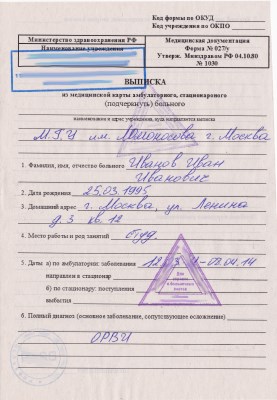 Код формы по ОКУД
Код учреждения по ОКПО
Министерство здравоохранения РФ
Наименование учреждения
Медицинская документация
Форма № 027/у
Утверж. Минздравом РФ 04.10.80
№ 1030
ВЫПИСКА
из медицинской карты амбулаторного, стационарного
(подчеркнуть) больного
наименование и адрес учреждения, куда направляется выписка
МГУ им. Ломоносова г. Москва
1. Фамилия, имя, отчество больного Иванов Иван
Иванович
2. Дата рождения 25.03.1995
3. Домашний адрес г. Москва, ул. Ленина
д.3 кв. 12
4. Место работы и род занятий студ.
5. Даты: а) по амбулатории: заболевания
направлен в стационар
б) по стационару: поступления
выбытия
6. Полный диагноз (основное заболевание, сопутствующее осложнение)
ОРВИ